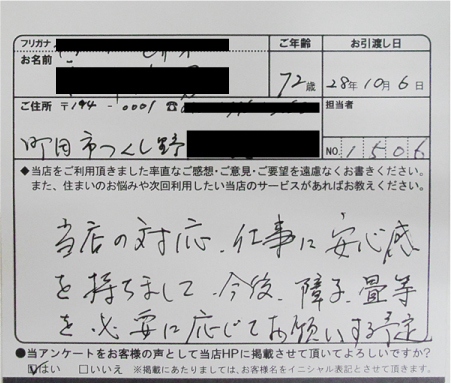 フリガナ
お名前
ご年齢
72歳
お引渡し日
28年10月6日
ご住所 〒194-0001 ☎
町田市つくし野
担当者
NO. 1506
◆当店をご利用頂きました率直なご感想・ご意見・ご要望を遠慮なくお書きください。
また、住まいのお悩みや次回利用したい当店のサービスがあればお教えください。
当店の対応、仕事に安心感
を持ちまして、今後、障子、畳等
を必要に応じてお願いする予定
●当アンケートをお客様の声として当店HPに掲載させて頂いてよろしいですか?
☑はい □いいえ ※掲載にあたりましては、お客様名をイニシャル表記とさせて頂きます。